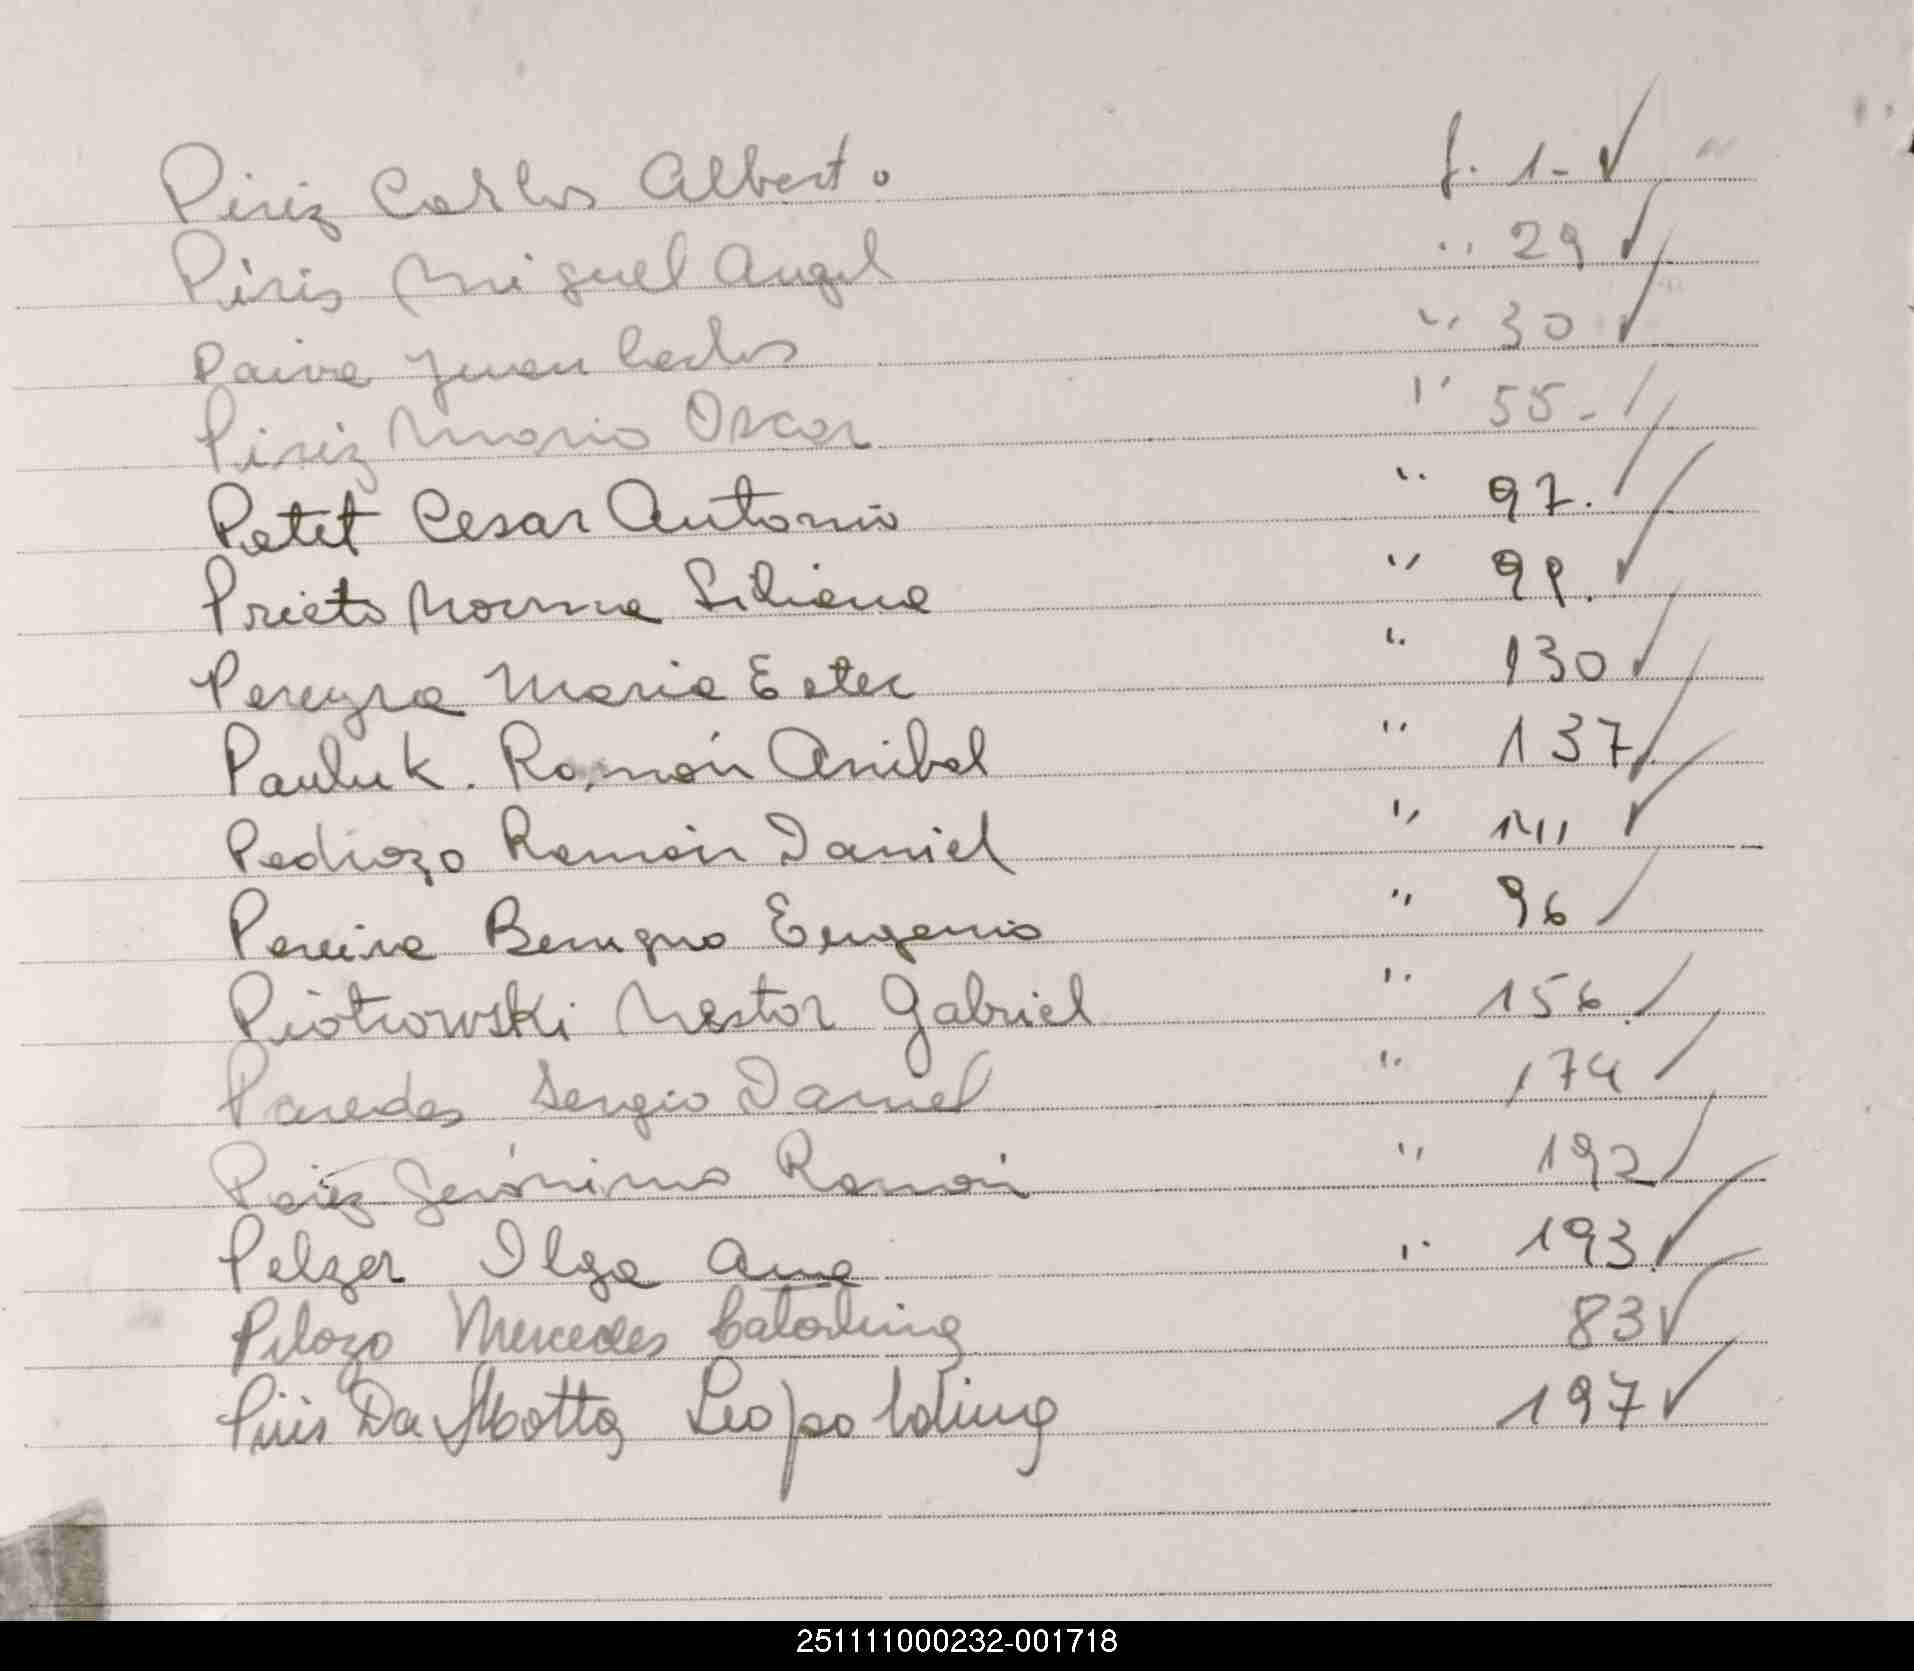 Piriz Carlos Alberto f. 1- ✓
Piris Miguel Angel " 29 ✓
Paiva Juan Carlos " 30 ✓
Piriz Mario Oscar " 55-
Petet Cesar Antonio " 97.
Prieto Norma Liliana " 99. ✓
Pereyra Maria Ester " 130 ✓
Pauluk. Ramón Anibal " 137 ✓
Pedrozo Ramón Daniel " ✓
Pereira Benigno Eugenio " 96 ✓
Piotrowski Nestor Gabriel " 156. ✓
Paredes Sergio Daniel " 174 ✓
Jerónimo Ramón " 192 ✓
Pelzer Ilga Ana " 193. ✓
Pilozo Mercedes Catalina 83 ✓
Piris Da Motta Leopoldina 197 ✓
251111000232-001718